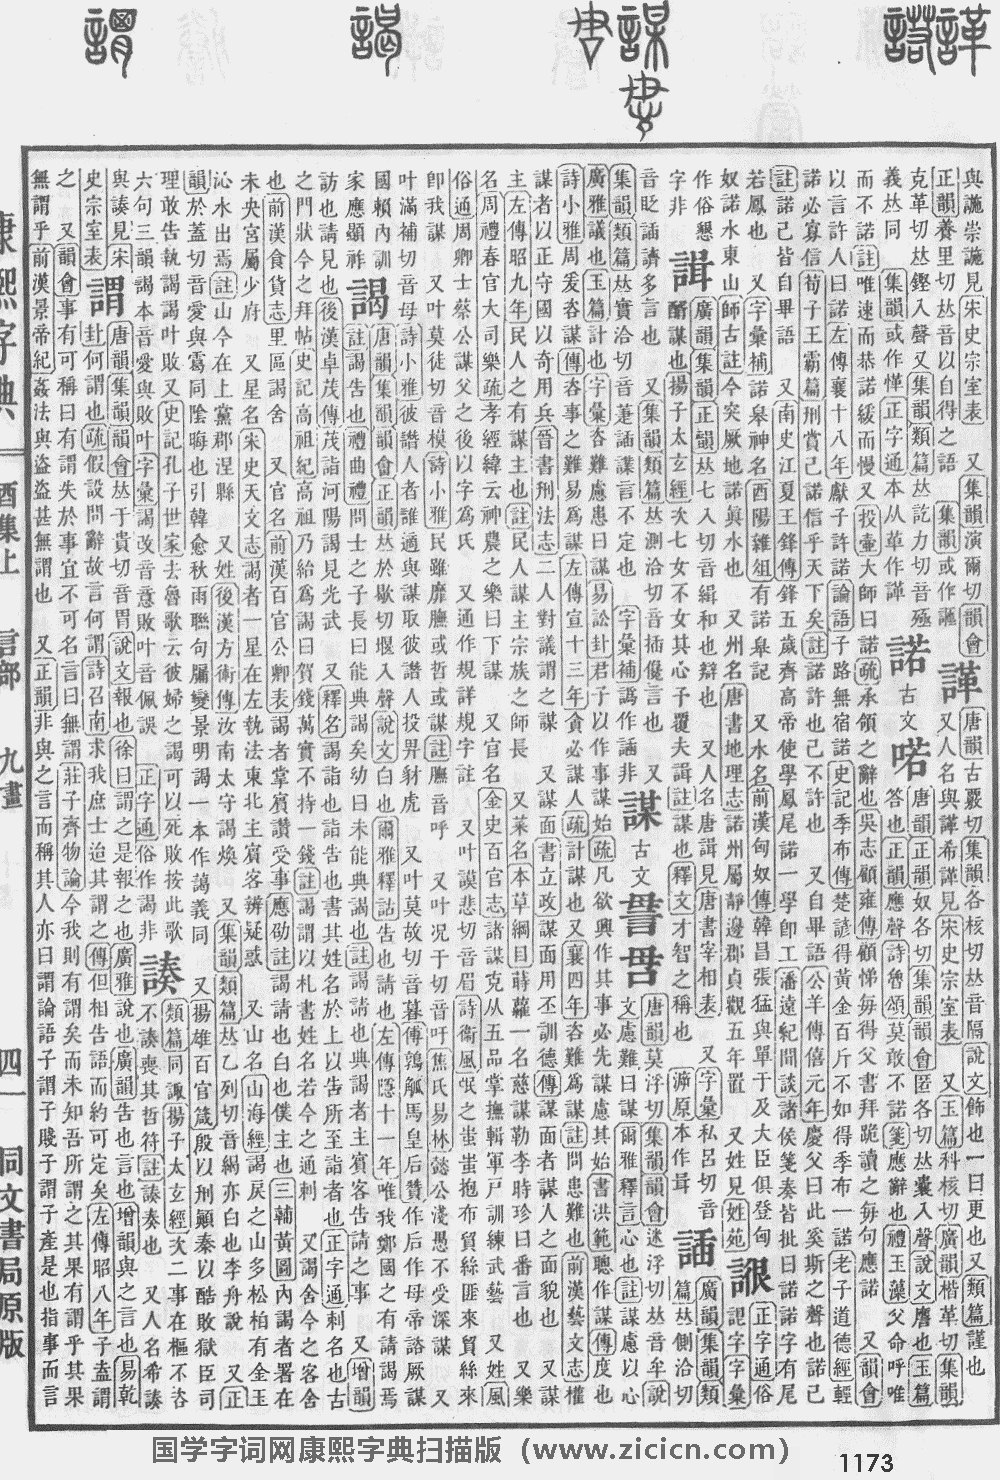 諽 諾
謀
謁
謂
與訑崇訑見宋史宗室表 又集韻演爾切韻會
正韻養里切𠀤音以自得之語 集韻或作訑
諽
唐韻古覈切集韻各核切𠀤音隔說文飾也一曰更也又類篇謹也
又人名與諽希諽見宋史宗室表 又玉篇科核切廣韻楷革切集韻
克革切𠀤鏗入聲又集韻類篇𠀤訖力切音殛
義𠀤同 集韻或作愅正字通本从革作諽
諾
古文
喏
唐韻正韻奴各切集韻韻會匿各切𠀤囊入聲說文譍也玉篇
答也正韻應聲詩魯頌莫敢不諾箋應辭也禮玉藻父命呼唯
而不諾註唯速而恭諾緩而慢又投壷大師曰諾疏承領之辭也吳志顧雍傳顧悌每得父書拜跪讀之每句應諾 又韻會
以言許人曰諾左傳襄十八年獻子許諾論語子路無宿諾史記季布傳楚諺得黃金百斤不如得季布一諾老子道德經輕
諾必寡信荀子王霸篇刑賞己諾信乎天下矣註諾許也己不許也 又自畢語公羊傳僖元年慶父曰此奚斯之聲也諾己
註諾己皆自畢語 又南史江夏王鋒傳鋒五歲齊高帝使學鳳尾諾一學卽工潘遠紀聞談諸侯箋奏皆批曰諾諾字有尾
若鳳也 又字彙補諾皋神名酉陽雜俎有諾皋記 又水名前漢匈奴傳韓昌張猛與單于及大臣俱登匈
奴諾水東山師古註今突厥地諾眞水也 又州名唐書地理志諾州屬靜邊郡貞觀五年置 又姓見姓苑
詪
正字通俗
記字字彙
作俗懇
字非
諿
廣韻集韻正韻𠀤七入切音緝和也辯也 又人名唐諿見唐書宰相表 又字彙私呂切音
醑謀也揚子太玄經次七女不女其心予覆夫諿註謀也釋文才智之稱也 㴑原本作諿
誧
廣韻集韻類
篇𠀤側洽切
音眨誧譗多言也 又集韻類篇𠀤測洽切音插儳言也 又
集韻類篇𠀤實洽切音萐誧諜言不定也 字彙補譌作䛽非
謀
古文
𠰔𠰑
唐韻莫浮切集韻韻會迷浮切𠀤音牟說
文慮難曰謀爾雅釋言心也註謀慮以心
廣雅議也玉篇計也字彙咨難慮患曰謀易訟卦君子以作事謀始疏凡欲興作其事必先謀慮其始書洪範聰作謀傳度也
詩小雅周爰咨謀傳咨事之難易爲謀左傳宣十三年貪必謀人疏計謀也又襄四年咨難爲謀註問患難也前漢藝文志權
謀者以正守國以奇用兵晉書刑法志二人對議謂之謀 又謀面書立政謀面用丕訓德傳謀面者謀人之面貌也 又
主左傳昭九年民人之有謀主也註民人謀主宗族之師長 又菜名本草綱目蒔蘿一名慈謀勒李時珍曰番言也 又樂
名周禮春官大司樂疏孝經緯云神農之樂曰下謀 又官名金史百官志諸謀克从五品掌撫輯軍戸訓練武藝 又姓風
俗通周卿士蔡公謀父之後以字爲氏 又通作規詳規字註 又叶謨悲切音眉詩衞風氓之蚩蚩抱布貿絲匪來貿絲來
卽我謀 又叶莫徒切音模詩小雅民雖靡膴或哲或謀註膴音呼 又叶况于切音吁焦氏易林懿公淺愚不受深謀 又
叶滿補切音母詩小雅彼譖人者誰適與謀取彼譖人投畀豺虎 又叶莫故切音暮傅鶉觚馬皇后贊作后作母帝諮厥謀
國賴內訓
家應顯祚
謁
唐韻集韻韻會正韻𠀤於歇切堰入聲說文白也爾雅釋詁告也請也左傳隱十一年唯我鄭國之有請謁焉
註謁告也禮曲禮問士之子長曰能典謁矣幼曰未能典謁也註謁請也典謁者主賓客告請之事 又增韻
訪也請見也後漢卓茂傳茂詣河陽謁見光武 又釋名謁詣也詣告也書其姓名於上以告所至詣者也正字通刺名也古
之門狀今之拜帖史記高祖紀高祖乃紿爲謁曰賀錢萬實不持一錢註謁謂以札書姓名若今之通刺 又謁舍今之客舍
也前漢食貨志里區謁舍 又官名前漢百官公卿表謁者掌賓讚受事應劭註謁請也白也僕主也三輔黃圖內謁者署在
未央宮屬少府 又星名宋史天文志謁者一星在左執法東北主賓客辨疑惑 又山名山海經謁戾之山多松柏有金玉
沁水出焉註山今在上黨郡涅縣 又姓後漢方術傳汝南太守謁煥 又集韻類篇𠀤乙列切音𦂶亦白也李舟說 又正
韻於蓋切音愛與靄同陰晦也引韓愈秋雨聯句屬變景明謁一本作藹義同 又揚雄百官箴殷以刑顚秦以酷敗獄臣司
理敢告執謁謁叶敗又史記孔子世家去魯歌云彼婦之謁可以死敗按此歌
六句三韻謁本音愛與敗叶字彙謁改音意敗叶音佩誤 正字通俗作謁非
䜈
類篇同諏揚子太玄經次二事在樞不咨
不䜈喪其哲符註䜈奏也 又人名希䜈
與䜈見宋
史宗室表
謂
唐韻集韻韻會𠀤于貴切音胃說文報也徐曰謂之是報之也廣雅說也廣韻告也言也增韻與之言也易乾
卦何謂也疏假設問辭故言何謂詩召南求我庶士迨其謂之傳但相告語而約可定矣左傳昭八年子盍謂
之 又韻會事有可稱曰有謂失於事宜不可名言曰無謂莊子齊物論今我則有謂矣而未知吾所謂之其果有謂乎其果
無謂乎前漢景帝紀姦法與盜盜甚無謂也 又正韻非與之言而稱其人亦曰謂論語子謂子賤子謂子產是也指事而言
康熙字典 酉集上 言部 九畫 四一 同文書局原版
国学字词网康熙字典扫描版（www.zicicn.com）
1173